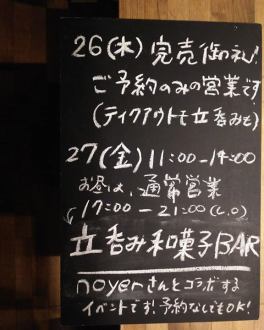 26(木) 完売御礼!
ご予約のみの営業です
(テイクアウトも立呑みも)
27(金) 11:00-14:00
お昼は、通常営業
17:00-21:00(L.O)
立呑み和菓子BAR
noyerさんとコラボする
イベントです!予約なしでもOK!